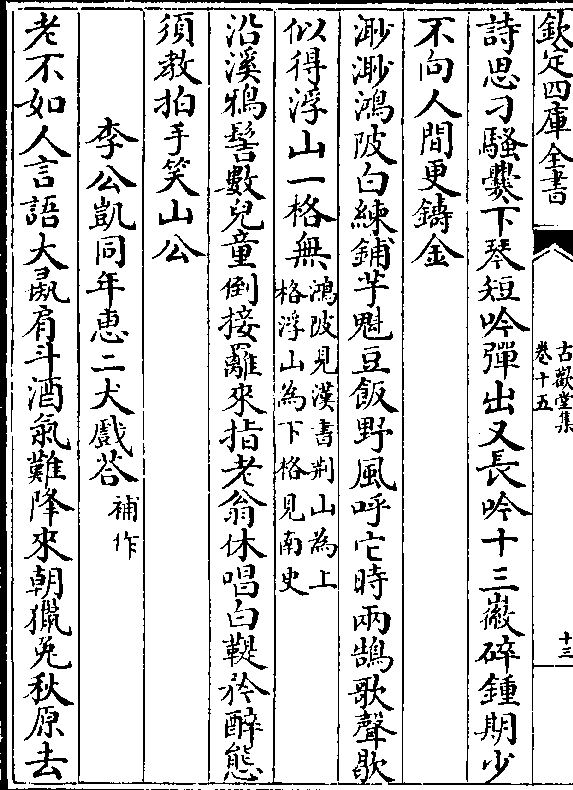 欽定四庫全書
古歡堂集
卷十五
十三
詩思刁騷爨下琴短吟彈出又長吟十三徽碎鍾期少
不向人間更鑄金
渺渺鴻陂白練鋪芋魁豆飯野風呼亡時兩鵠歌聲歇
似得浮山一格無鴻陂見漢書荆山為上
格浮山為下格見南史
沿溪鴉髻數兒童倒接䍦來指老翁休唱白鞮矜醉態
須教拍手笑山公
李公凱同年惠二犬戲答補作
老不如人言語大羸肩斗酒氣難降來朝獵兔秋原去